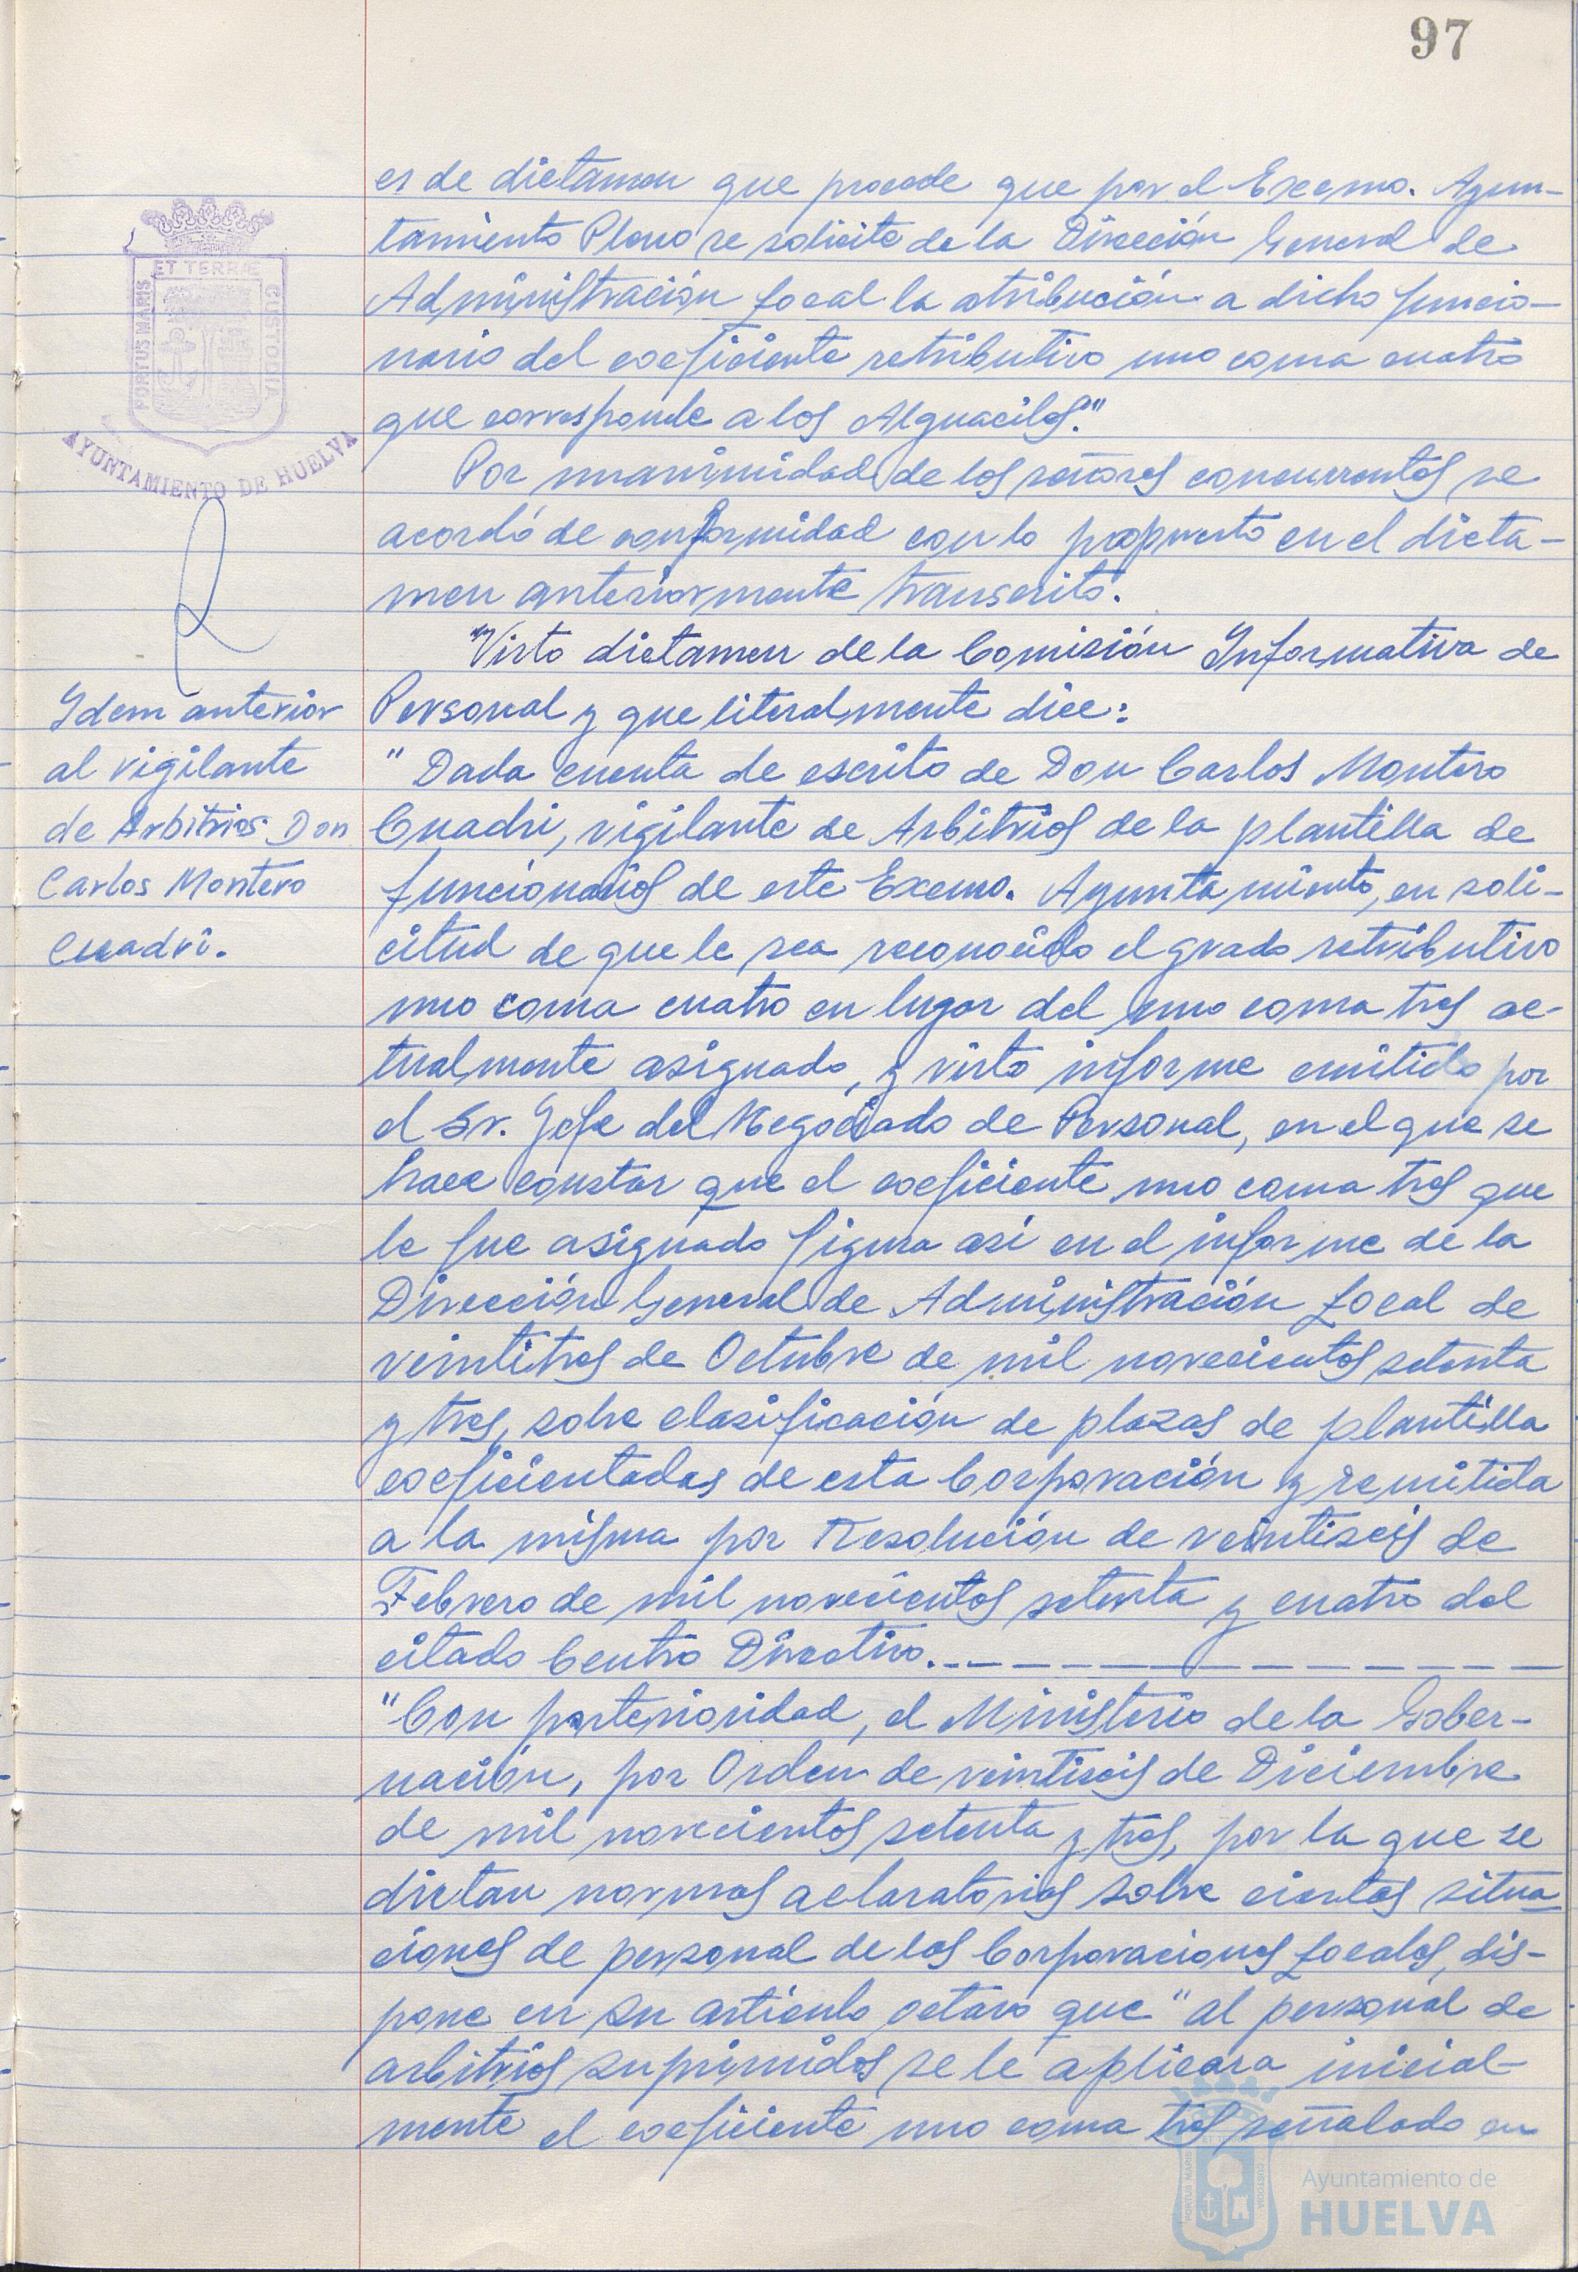 97
es de dictamen que procede que por el Excmo. Ayun-
tamiento Pleno se solicite de la Dirección General de
Administración Local la atribución a dicho funcio-
nario del coeficiente retributivo uno coma cuatro
que corresponde a los Alguaciles."
Por unanimidad de los señores concurrentes se
acordó de conformidad con lo propuesto en el dicta-
men anteriormente transcrito.
Visto dictamen de la Comisión Informativa de
Personal y que literalmente dice:
"Dada cuenta de escrito de Don Carlos Montero
Cuadri, vigilante de Arbitrios de la plantilla de
funcionarios de este Excmo. Ayuntamiento, en soli-
citud de que le sea reconocido el grado retributivo
uno coma cuatro en lugar del uno coma tres ac-
tualmente asignado, y visto informe emitido por
el Sr. Jefe del Negociado de Personal, en el que se
hace constar que el coeficiente uno coma tres que
le fue asignado figura así en el informe de la
Dirección General de Administración Local de
veintitres de Octubre de mil novecientos setenta
y tres, sobre clasificación de plazas de plantilla
coeficientadas de esta Corporación y remitida
a la misma por Resolución de veintiseis de
Febrero de mil novecientos setenta y cuatro del
citado Centro Directivo.
"Con posterioridad, el Ministerio de la Gober-
nación, por Orden de veintiseis de Diciembre
de mil novecientos setenta y tres, por la que se
dictan normas aclaratorias sobre ciertas situa-
ciones de personal de las Corporaciones Locales, dis-
pone en su artículo octavo que "al personal de
arbitrios suprimidos se le aplicara inicial-
mente el coeficiente uno coma tres señalado en
ET TERRAE
PORTUS MARIS
CUSTODIA
AYUNTAMIENTO DE HUELVA
Idem anterior
al vigilante
de Arbitrios Don
Carlos Montero
Cuadri.
Ayuntamiento de
HUELVA